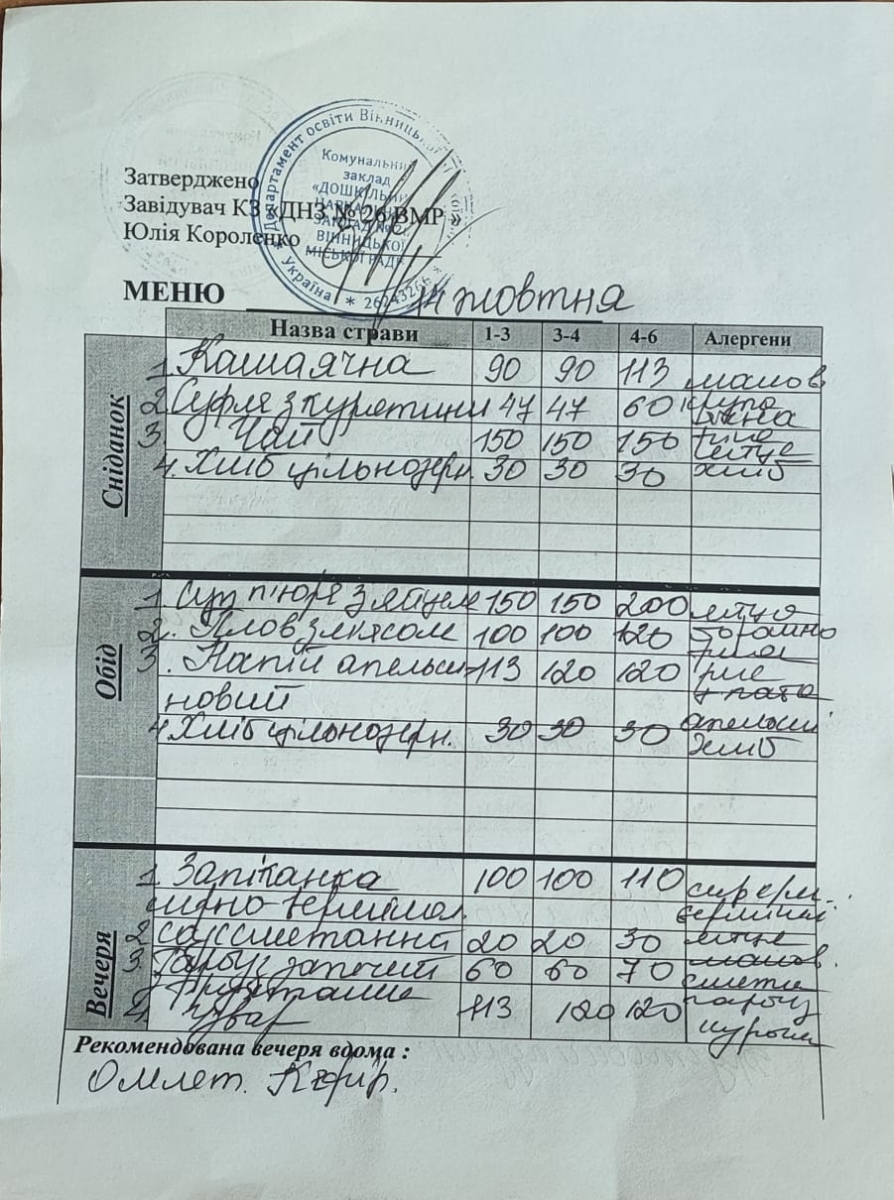 Затверджено
Завідувач КЗ «ДНЗ № 26 ВМР »
Юлія Короленко
Департамент освіти Вінницької
Комунальний
заклад
«ДОШКІЛЬНИЙ
НАВЧАЛЬНИЙ
ЗАКЛАД №2
ВІННИЦЬКОЇ
МІСЬКОЇ РАДИ
* Україна * 26243266 *
МЕНЮ 14 жовтня
Назва страви 1-3 3-4 4-6 Алергени
Сніданок
1. Каша ячна 90 90 113 молов
2. Суфле з курятини 47 47 60 крупа
3. Чай 150 150 150 яйце
4. Хліб цільнозерн. 30 30 30 хліб
Обід
1. Суп пюре з яйцем 150 150 200 яйце
2. Плов з мясом 100 100 120 борошно
3. Напій апельси- 113 120 120 рис
новий апельсин
4. Хліб цільнозерн. 30 30 30 хліб
Вечеря
1. Запіканка 100 100 110 сир
сирно-вермішел.
2. соус сметанний 20 20 30 яйце
3. Гарбуз запечений 60 60 70 молов.
смета
4. Узвар 113 120 120 гарбуз
Рекомендована вечеря вдома :
Омлет. Кефір.